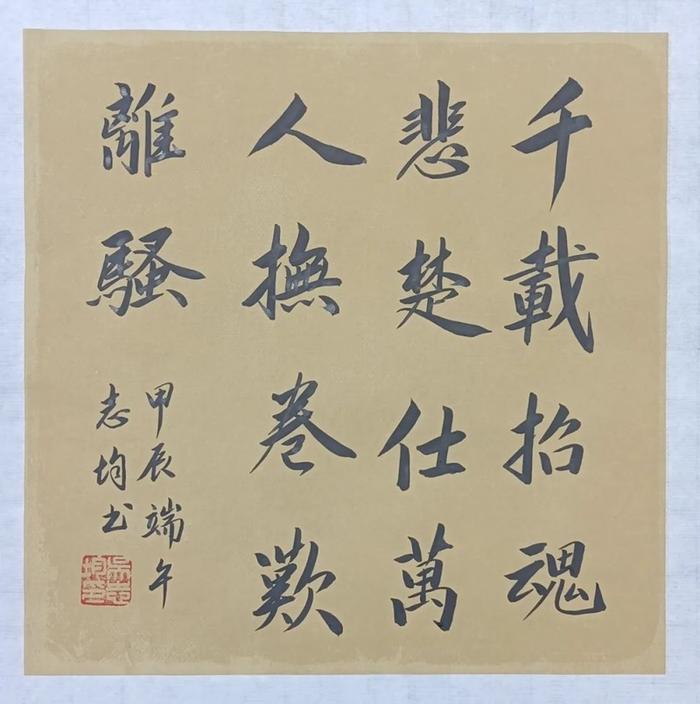 千載招魂
悲楚仕萬
人撫卷歎
離騷
甲辰端午
志均书